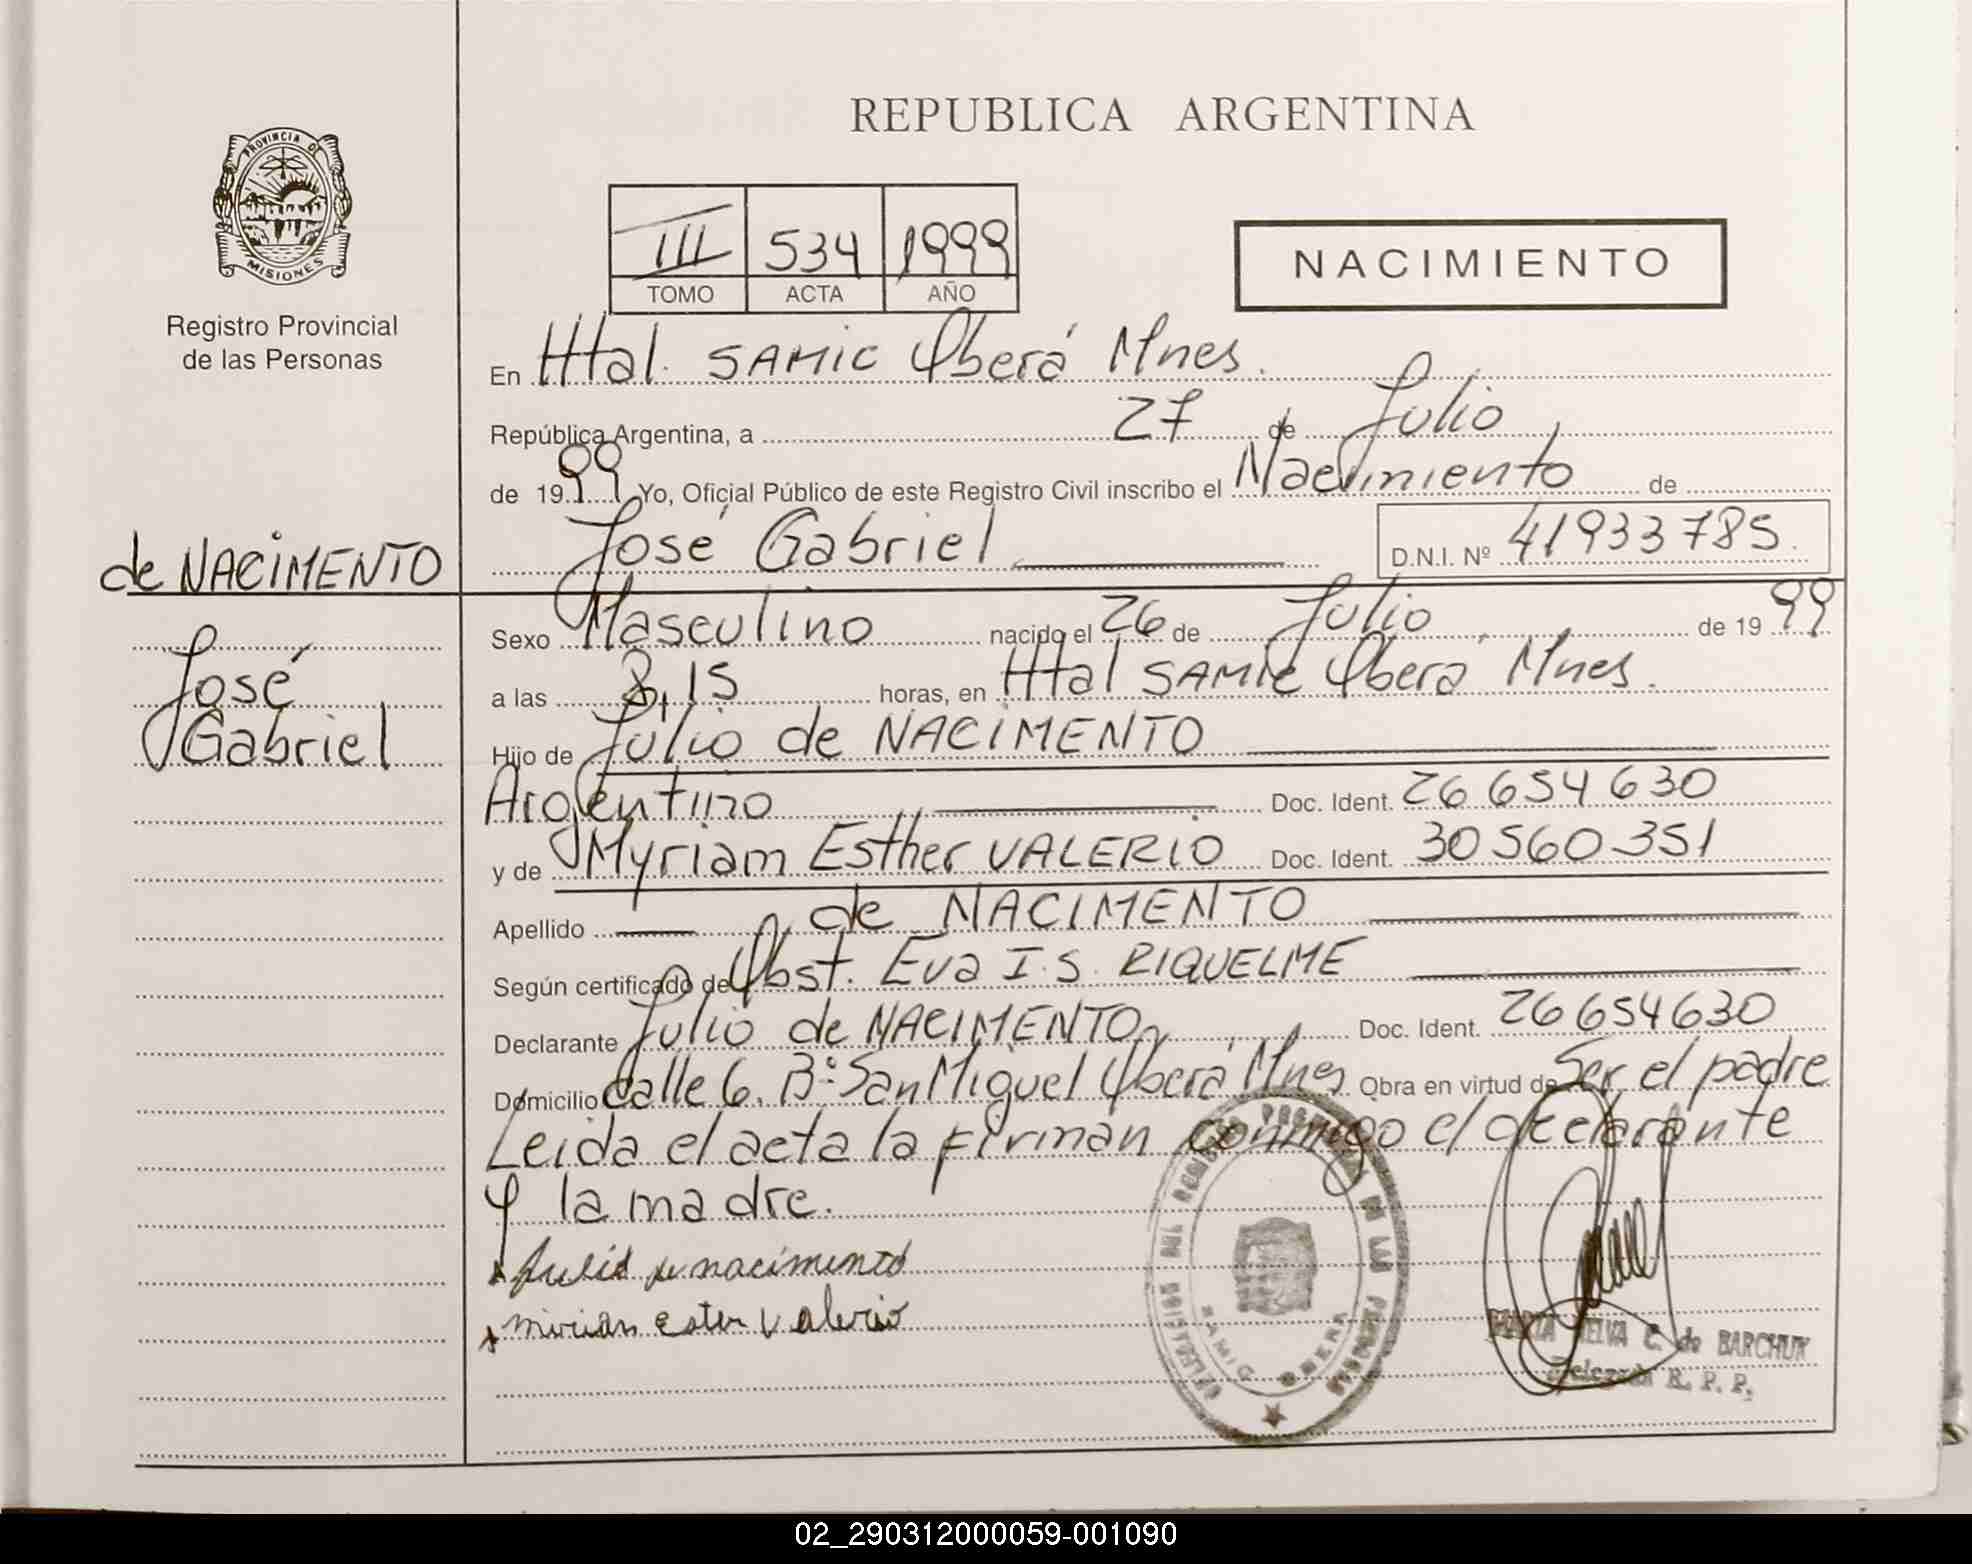 REPUBLICA ARGENTINA
PROVINCIA DE
MISIONES
Registro Provincial
de las Personas
III 534 1999
TOMO ACTA AÑO
NACIMIENTO
En Htal. SAMIC Oberá Mnes.
República Argentina, a 27 de Julio
de 1999 Yo, Oficial Público de este Registro Civil inscribo el Nacimiento de
José Gabriel D.N.I. Nº 41933785.
de NACIMENTO
José
Gabriel
Sexo Masculino nacido el 26 de Julio de 1999
a las 8,15 horas, en Htal SAMIC Oberá Mnes.
Hijo de Julio de NACIMENTO
Argentino Doc. Ident. 26 654 630
y de Myriam Esther VALERIO Doc. Ident. 30 560 351
Apellido de NACIMENTO
Según certificado de Obst. Eva I.S. RIQUELME
Declarante Julio de NACIMENTO Doc. Ident. 26654630
Domicilio Calle 6. Bº San Miguel Oberá Mnes Obra en virtud de Ser el padre
Leida el acta la firman conmigo el declarante
y la madre.
Julio de nacimento
mirian ester valerio
DE LAS
SAMIC OBERA
SELVA C. de BARCHUK
Delegada R. P. P.
02_290312000059-001090